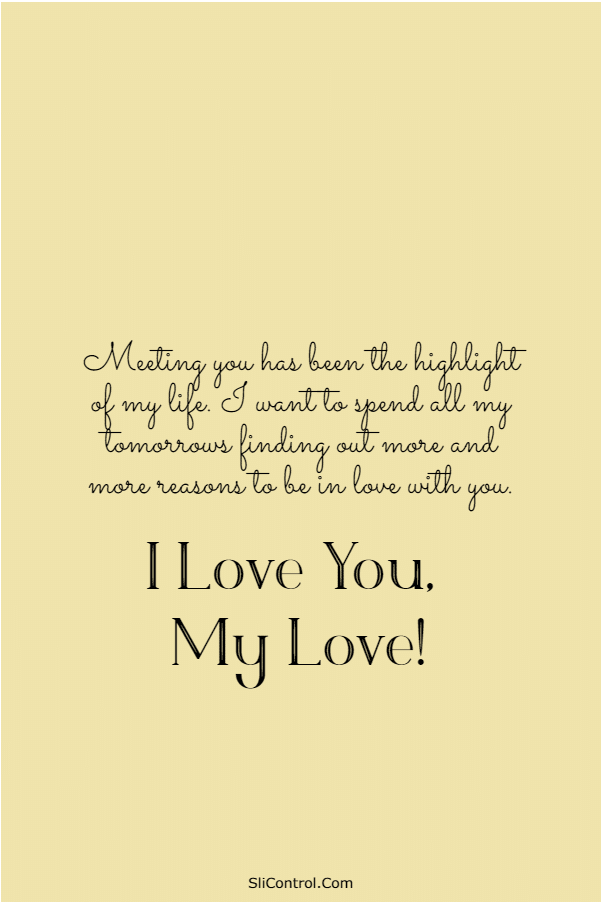 Meeting you has been the highlight
of my life. I want to spend all my
tomorrows finding out more and
more reasons to be in love with you.
I Love You,
My Love!
SliControl.Com